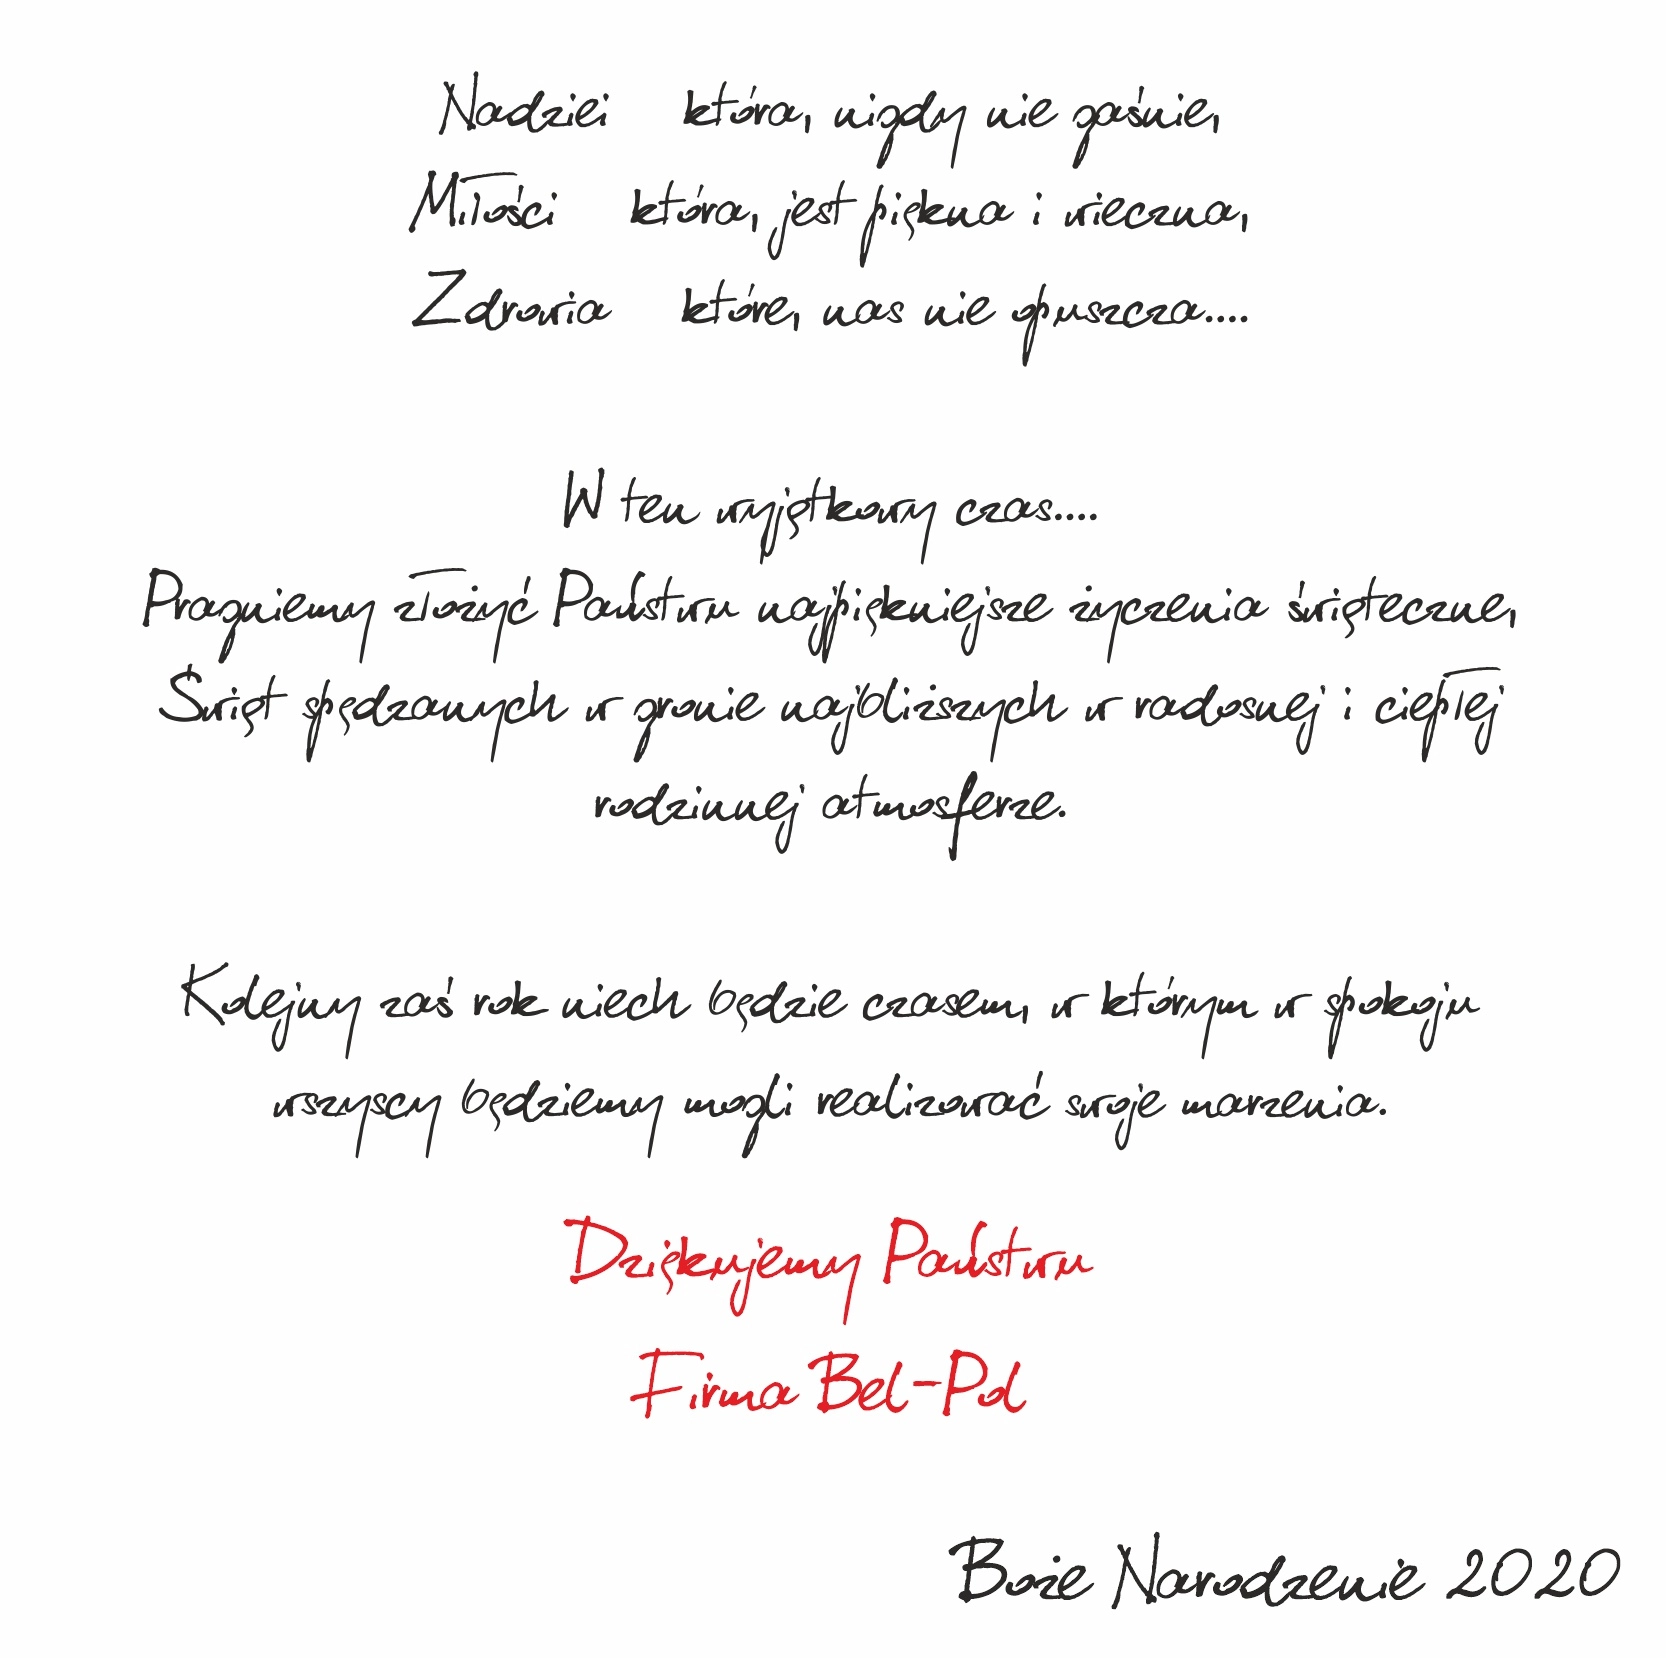 Nadziei która, nigdy nie gaśnie,
Miłości która, jest piękna i wieczna,
Zdrowia które, nas nie opuszcza....
W ten wyjątkowy czas....
Pragniemy złożyć Państwu najpiękniejsze życzenia świąteczne,
Świąt spędzanych w gronie najbliższych w radosnej i ciepłej
rodzinnej atmosferze.
Kolejny zaś rok niech będzie czasem, w którym w spokoju
wszyscy będziemy mogli realizować swoje marzenia.
Dziękujemy Państwu
Firma Bel-Pol
Boże Narodzenie 2020